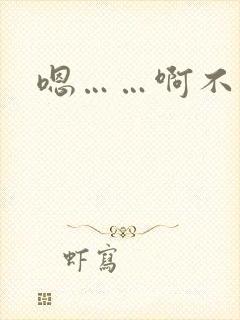 嗯……啊不
虾写